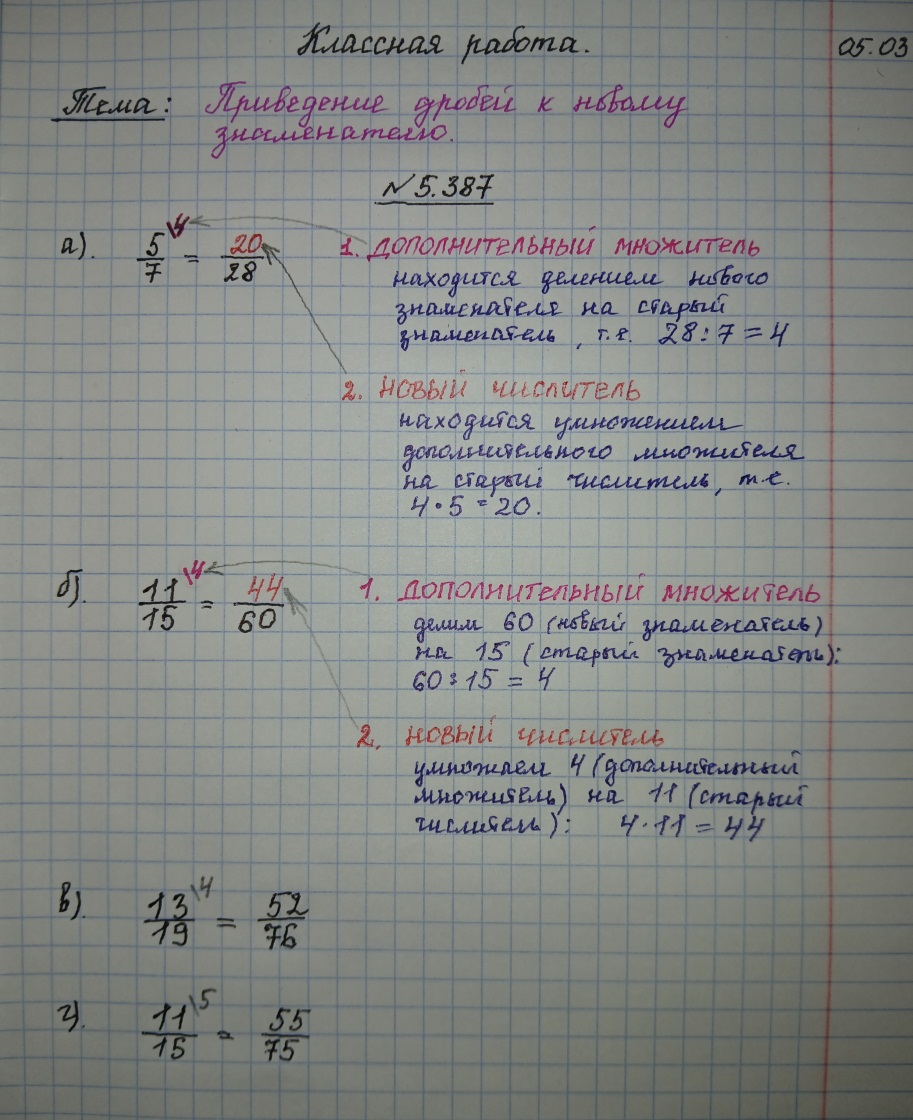 Классная работа. 05.03
Тема: Приведение дробей к новому
знаменателю.
№ 5.387
а). 5/7 \4 = 20/28
1. ДОПОЛНИТЕЛЬНЫЙ МНОЖИТЕЛЬ
находится делением нового
знаменателя на старый
знаменатель, т.е. 28:7=4
2. НОВЫЙ ЧИСЛИТЕЛЬ
находится умножением
дополнительного множителя
на старый числитель, т.е.
4·5=20.
б). 11/15 \4 = 44/60
1. ДОПОЛНИТЕЛЬНЫЙ МНОЖИТЕЛЬ
делим 60 (новый знаменатель)
на 15 (старый знаменатель):
60:15=4
2. НОВЫЙ ЧИСЛИТЕЛЬ
умножаем 4 (дополнительный
множитель) на 11 (старый
числитель): 4·11=44
в). 13/19 \4 = 52/76
г). 11/15 \5 = 55/75